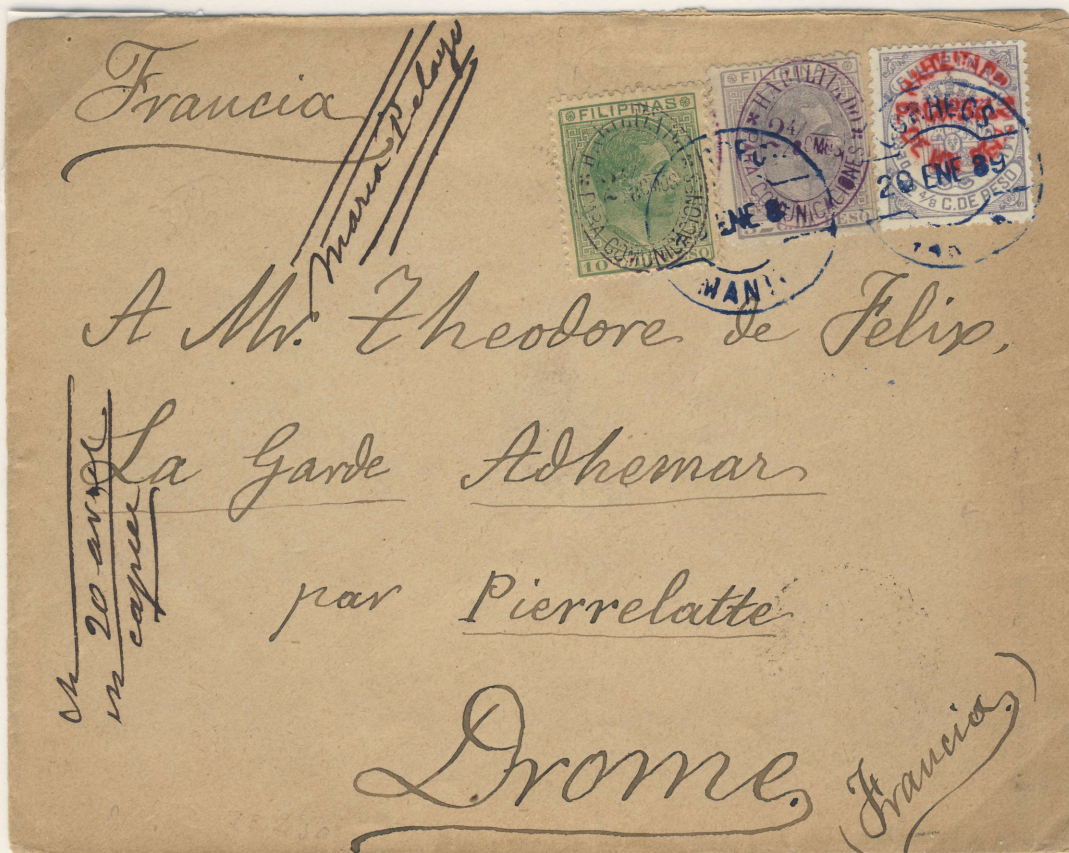 Francia
Maria Pelayo
FILIPINAS
HABILITADO
PARA COMUNICACIONES
10
FILIPINAS
HABILITADO
PARA COMUNICACIONES
2 4/8
PESO
4/8 C. DE PESO
20 ENE 89
ENE 8
MANI
A Mr. Theodore de Felix,
La Garde Adhemar
par Pierrelatte
Drome
(Francia.)
20